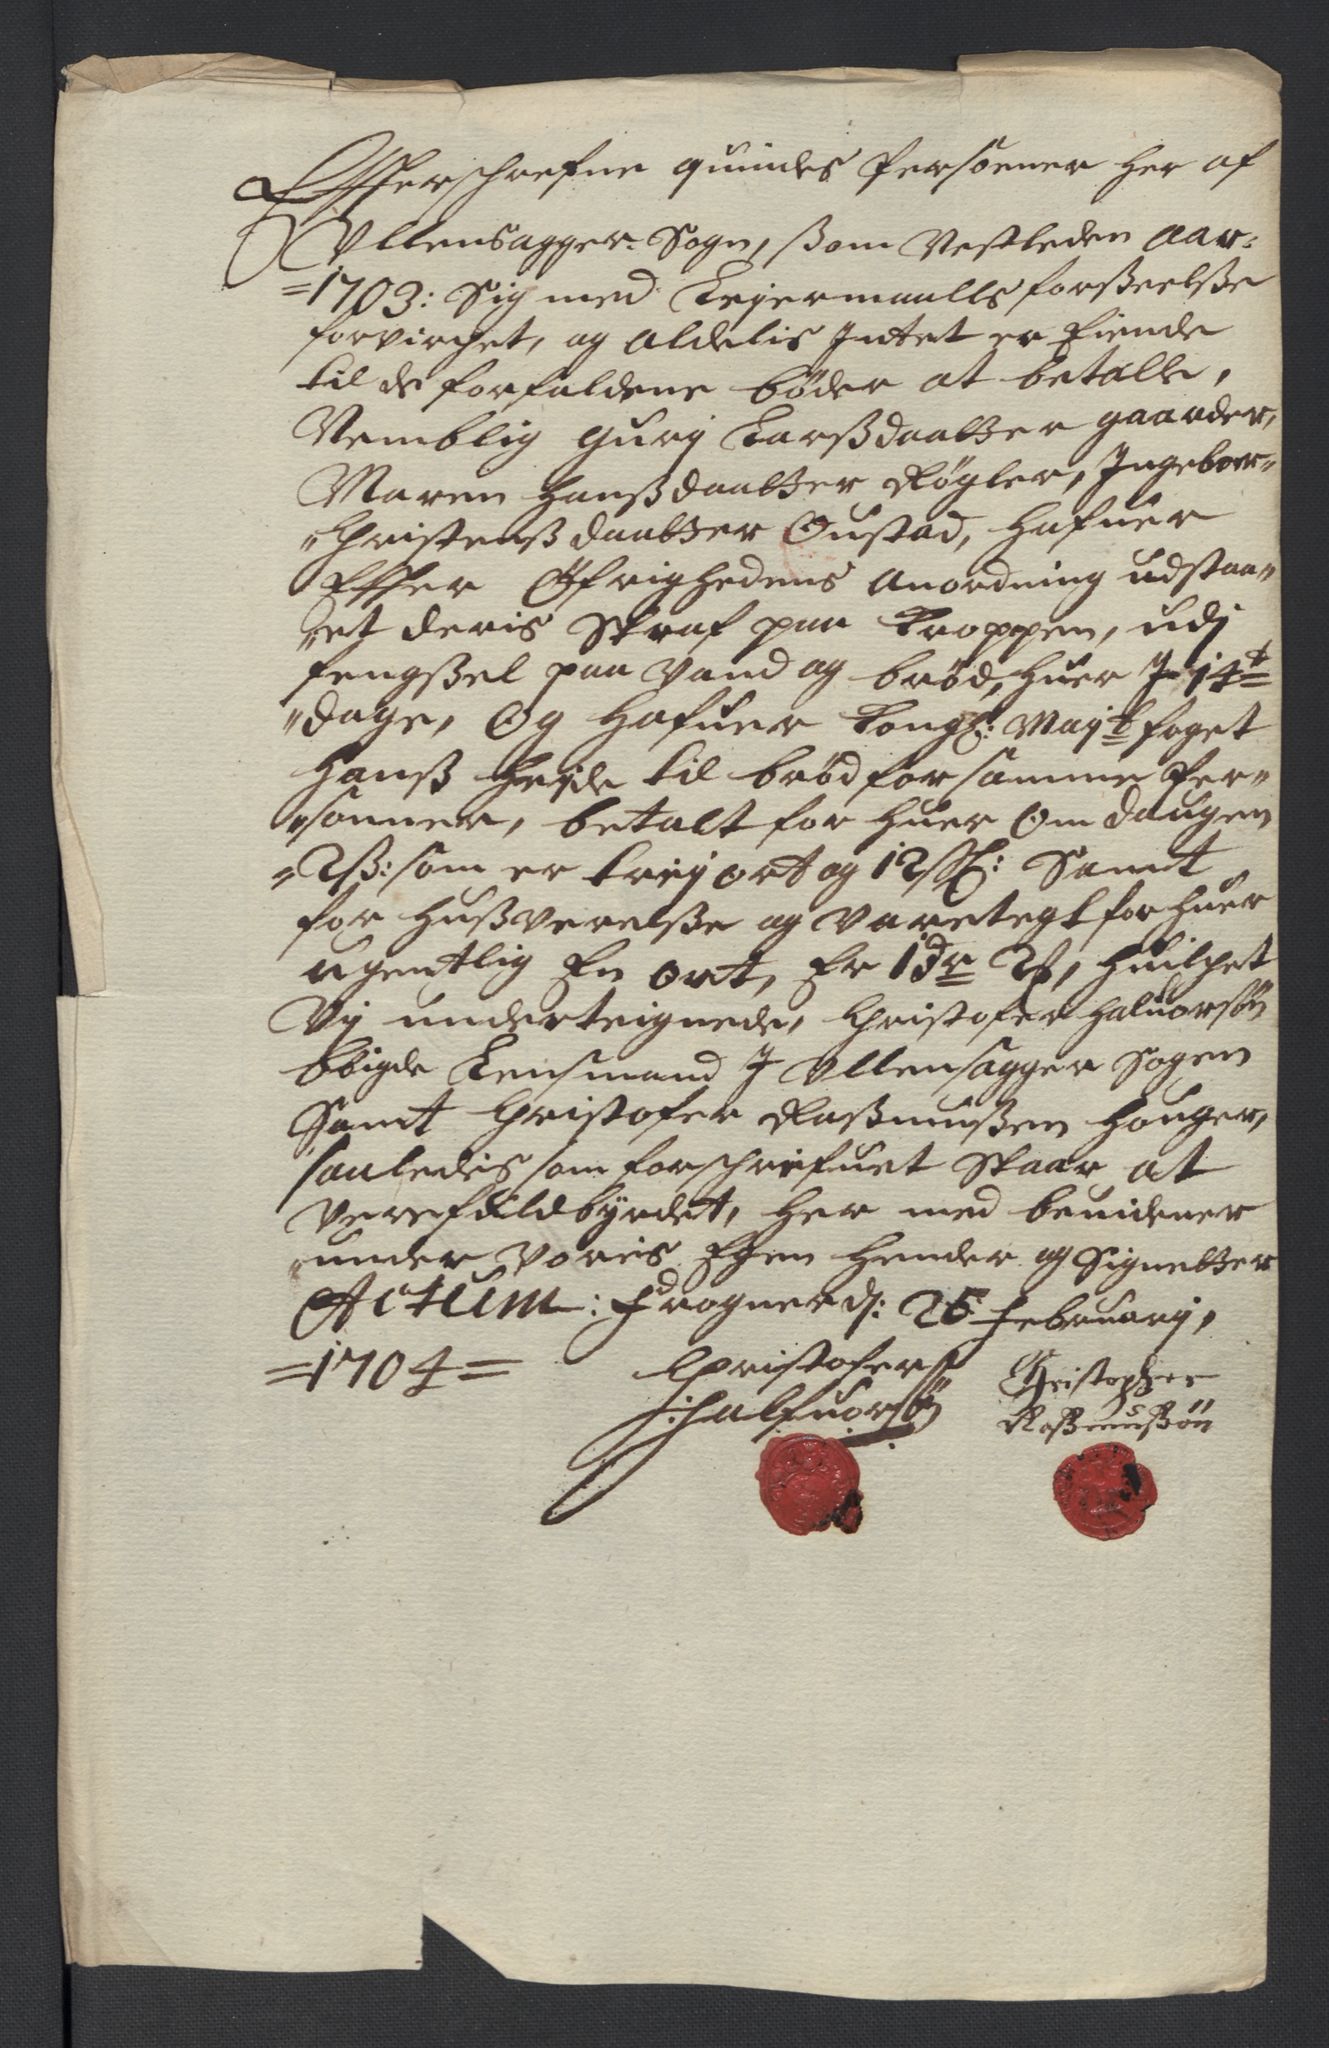 Effterschrefne quindes Persoener her af
Ullensagger Sogn, som Nestleden Aar
=1703: Sig med Leyermaalls forßeelße
forvirchet, og aldelis Intet er Eiende
til de forfaldene bøder at betalle,
Nemblig gurj Larßdaatter gaarder,
Maren Hanßdaatter Røgler, Ingebor
"Christenßdaatter Oustad, hafuer
Effter Øfrighedens anordning udstaa"
"et deris Straf paa Kroppen, udj
fengßel paa vand og brød, huer I 14t
"dage, Og hafuer Kongl: Mayts foget
Hanß Heyde til brød for samme Per"
"sonner, betalt for huer Om daugen
"2ß: som er trej ort og 12 sk: Samt
for Hußverelße og varetegt for huer
ugentlig En ort, Er 1 dr 2, huilchet
Vj underteignede, Christofer Haluorsøn
Bbigde Lensmand I Ullensagger Sogen
Samt Christofer Raßmußen Houger,
saaledis som forschrefuet Staar at
vere fuldbyrdet, her med beuidener
under voris Egen Hender og Signetter
Actum: Frogner d: 25 February,
=1704=
Christofer
Halfuorsøn
Christopher
Raßmußøn